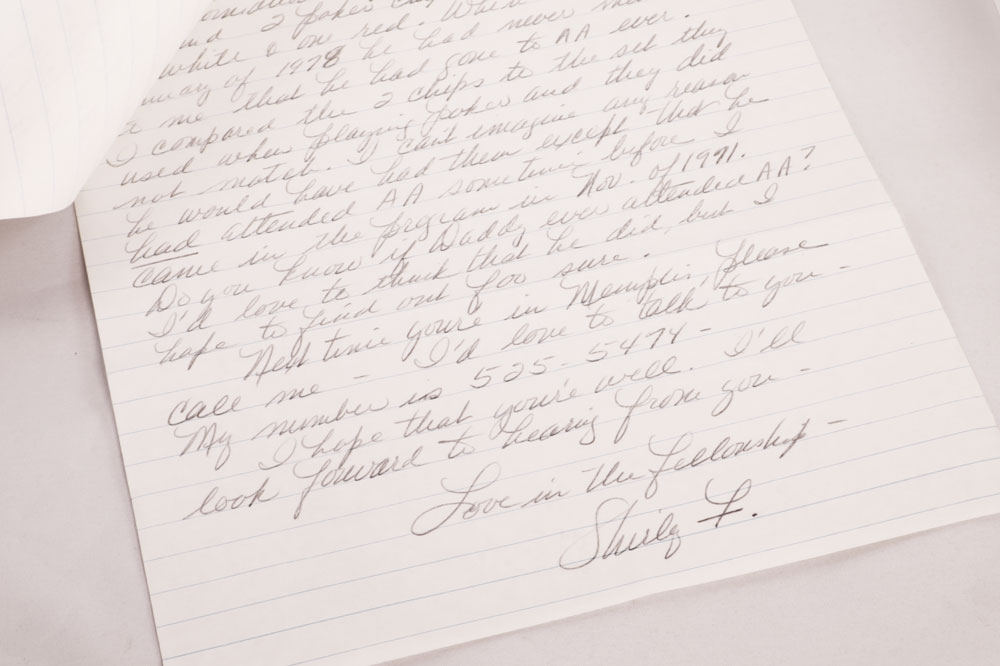 and 2 poker
white & one red. When
of 1978 he had never
me that he had gone to AA ever.
I compared the 2 chips to the set they
used when playing poker and they did
not match. I can't imagine any reason
he would have had them except that he
had attended AA sometime before I
came in the program in Nov. of 1991.
Do you know if Daddy ever attended AA?
I'd love to think that he did, but I
hope to find out for sure.
Next time you're in Memphis, please
call me – I'd love to talk to you –
My number is 525-5474 –
I hope that you're well. I'll
look forward to hearing from you –
Love in the Fellowship –
Shirley F.